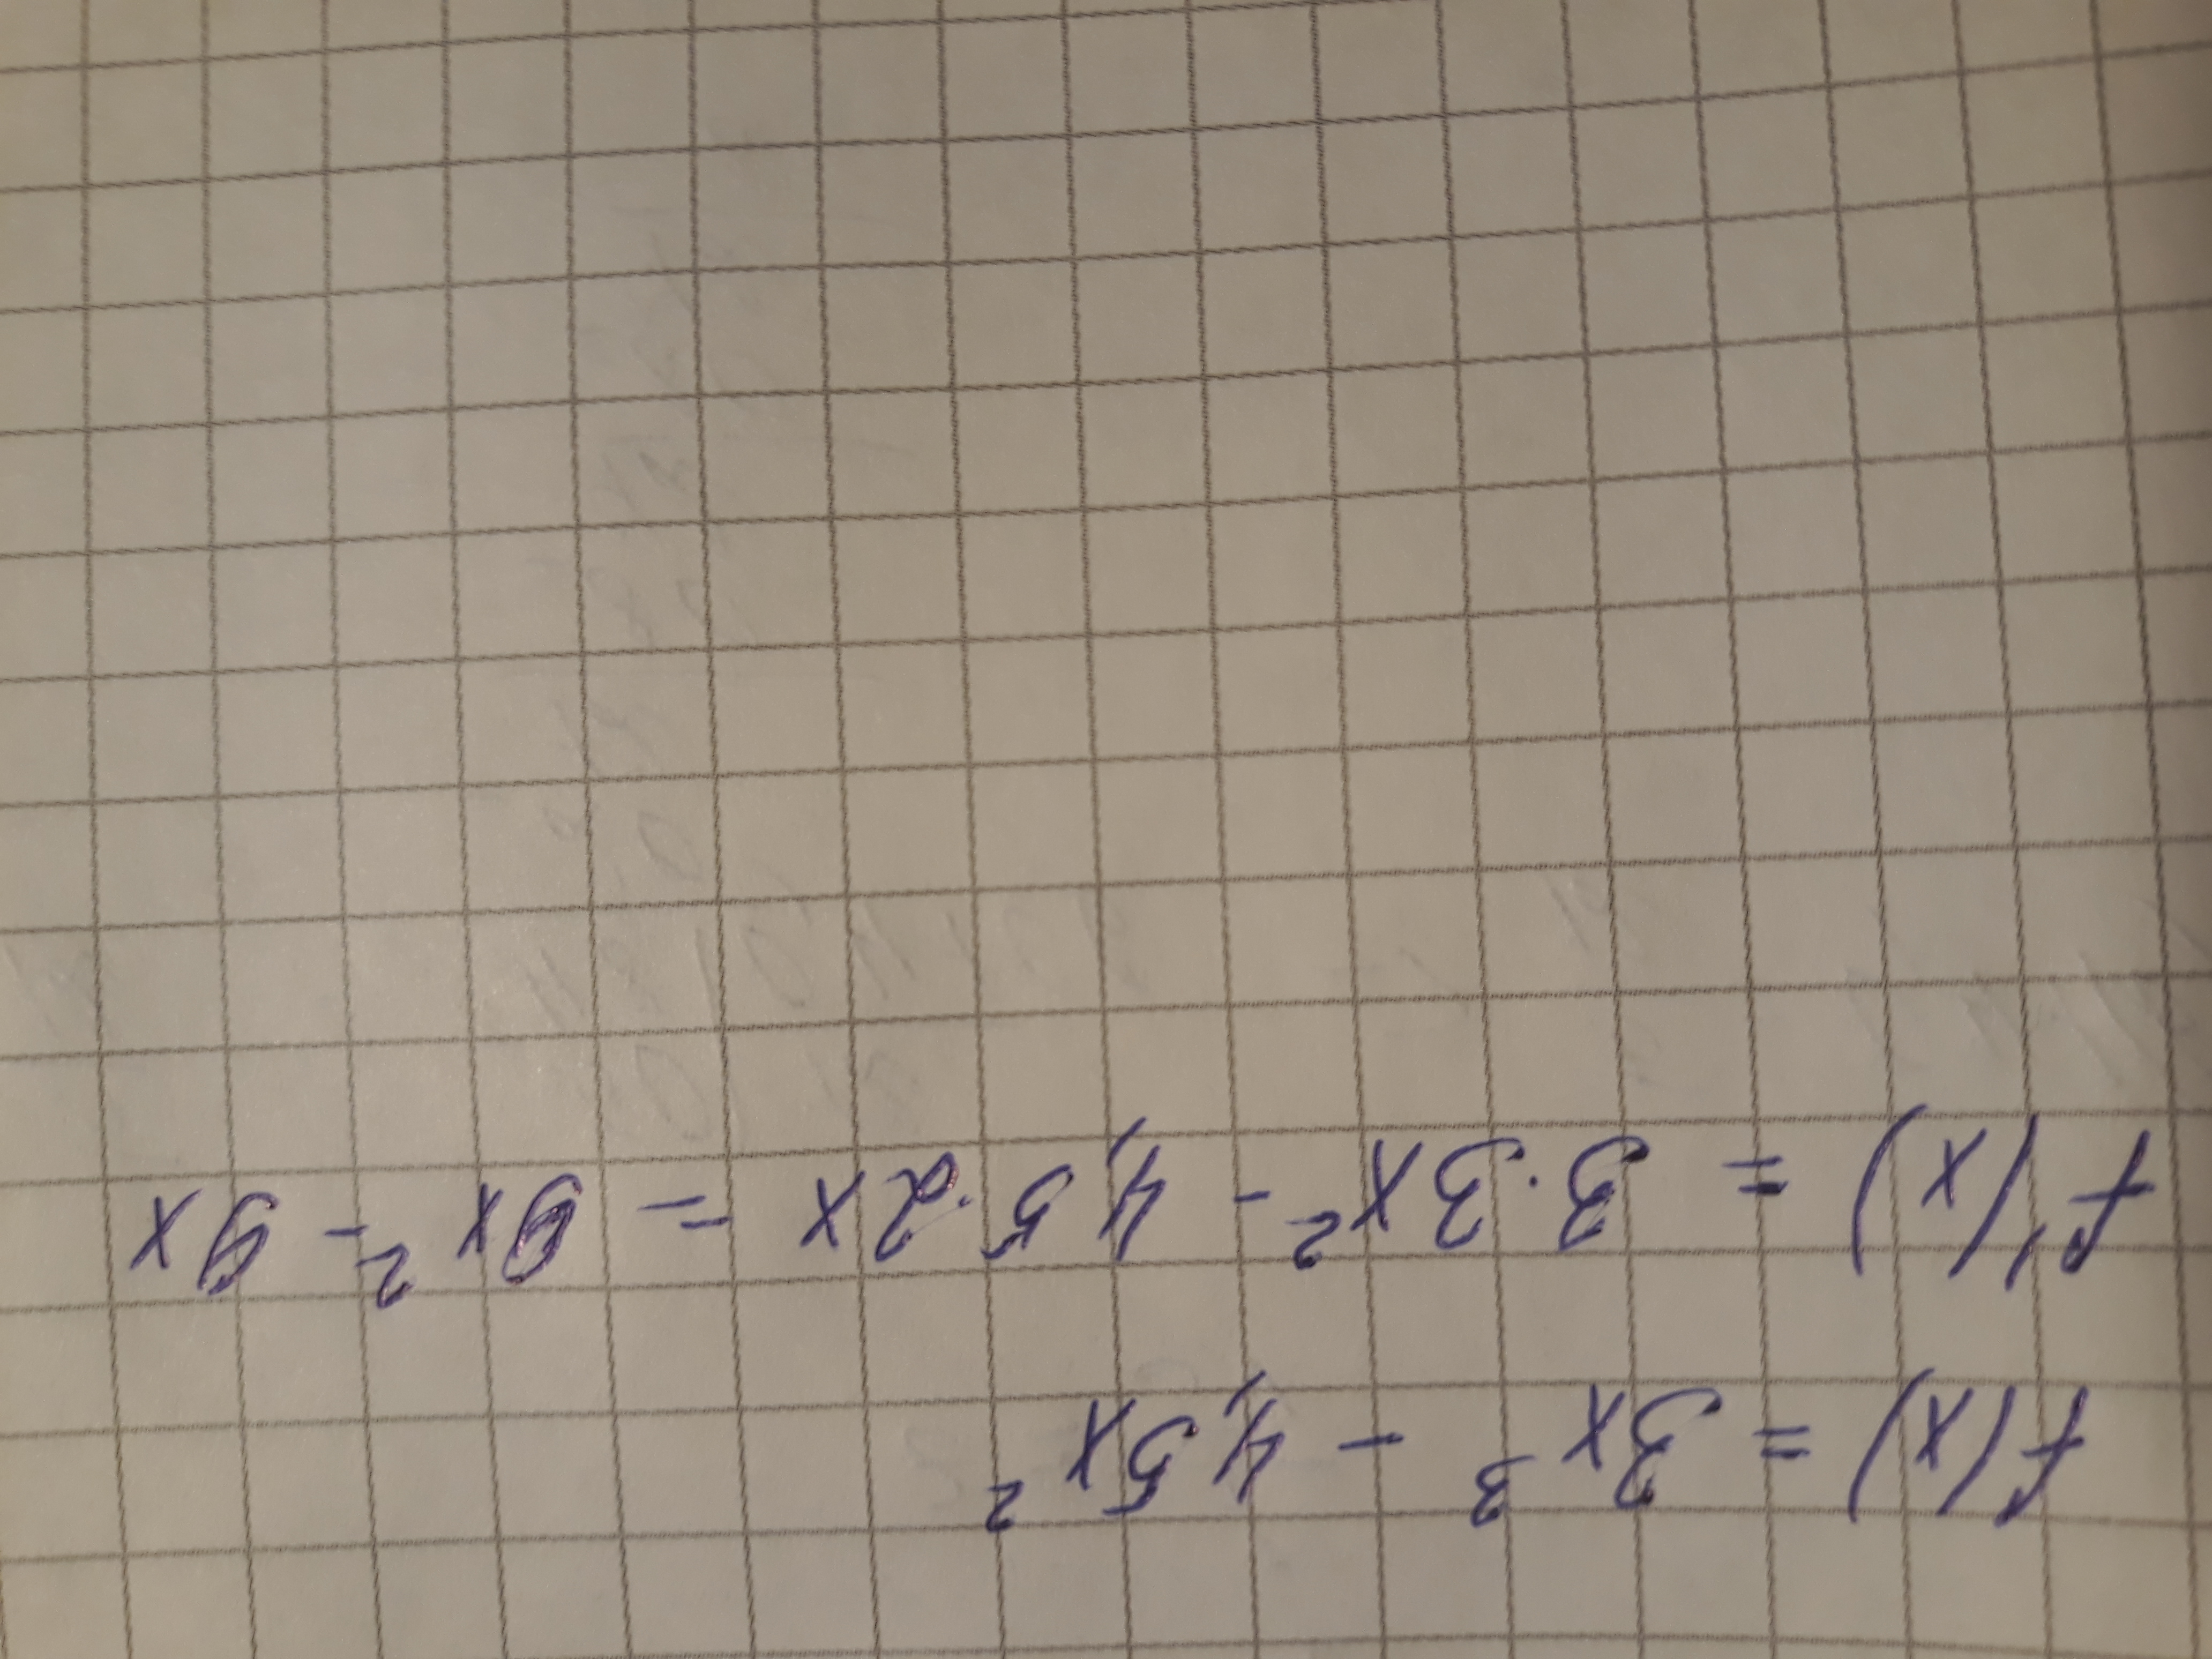 f(x) = 3x³ - 4,5x²
f'(x) = 3·3x² - 4,5·2x = 9x² - 9x